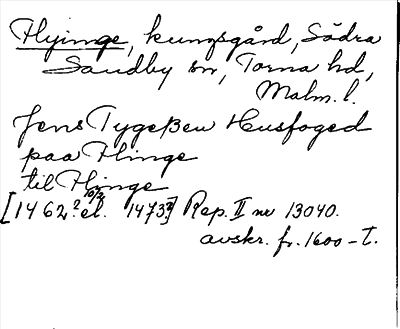 Flyinge, kungsgård, Södra
Sandby sn, Torna hd,
Malm. l.
Jens Tygeßen Husfoged
paa Flinge
til Flinge
[1462? 10/2 el. 1473?] Rep. II nr 13040.
avskr. fr. 1600-t.